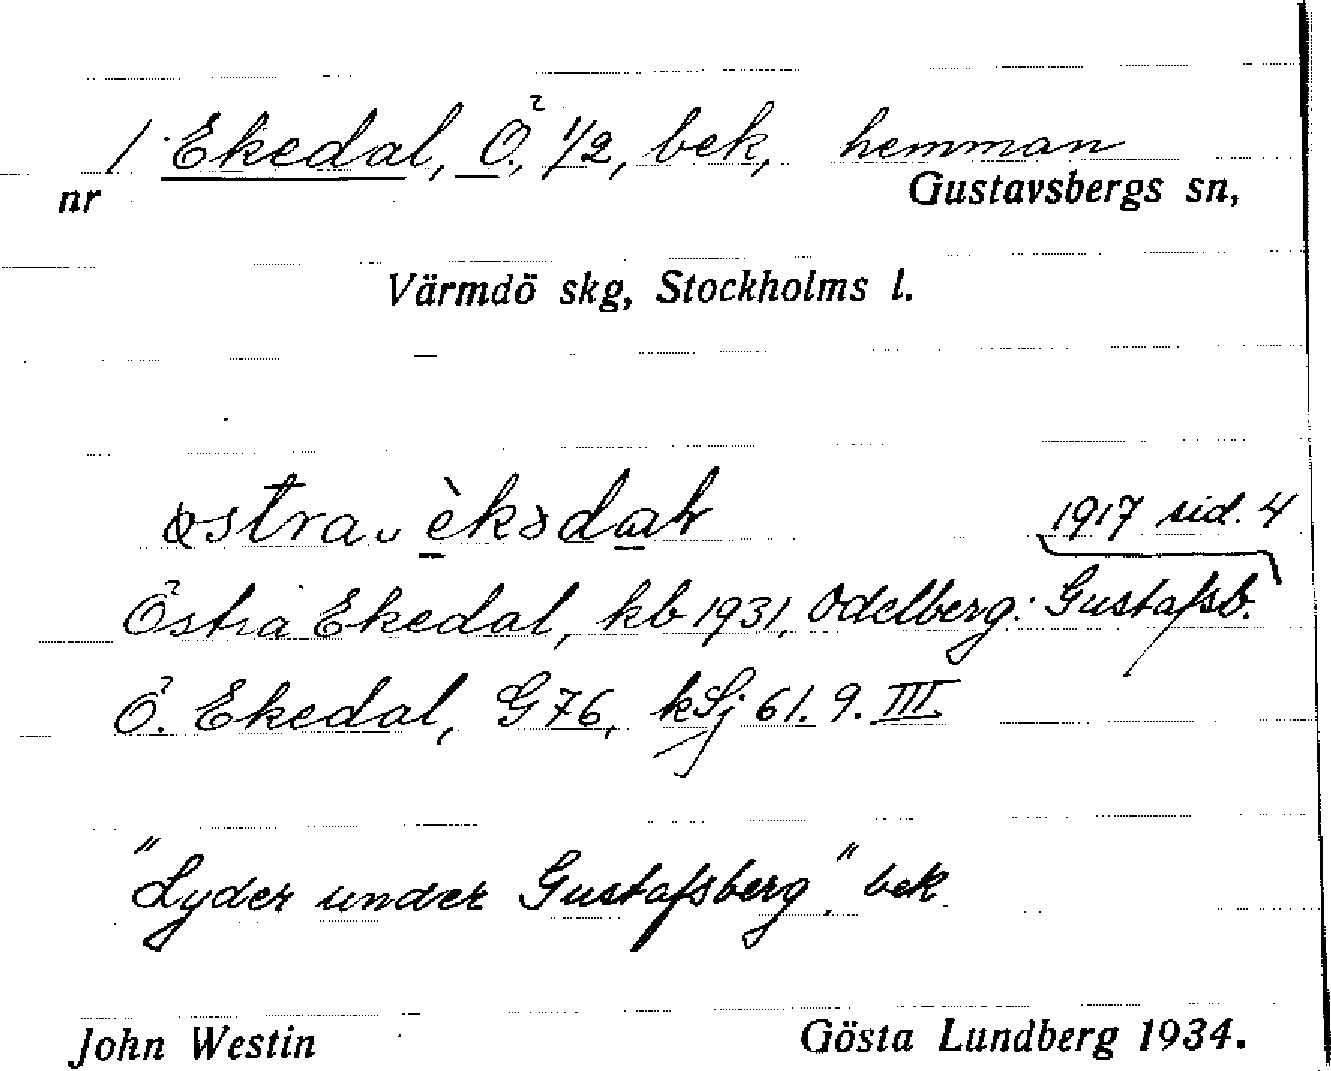 1 Ekedal, Ö. 1/2, bek, hemman
nr Gustavsbergs sn,
Värmdö skg, Stockholms l.
1917 sid. 4
Östra Ekedal, kb 1931, Odelberg: Gustafsb.
Ö. Ekedal, G 76, kSj 61. 9. III
"Lyder under Gustafsberg," bek.
John Westin Gösta Lundberg 1934.